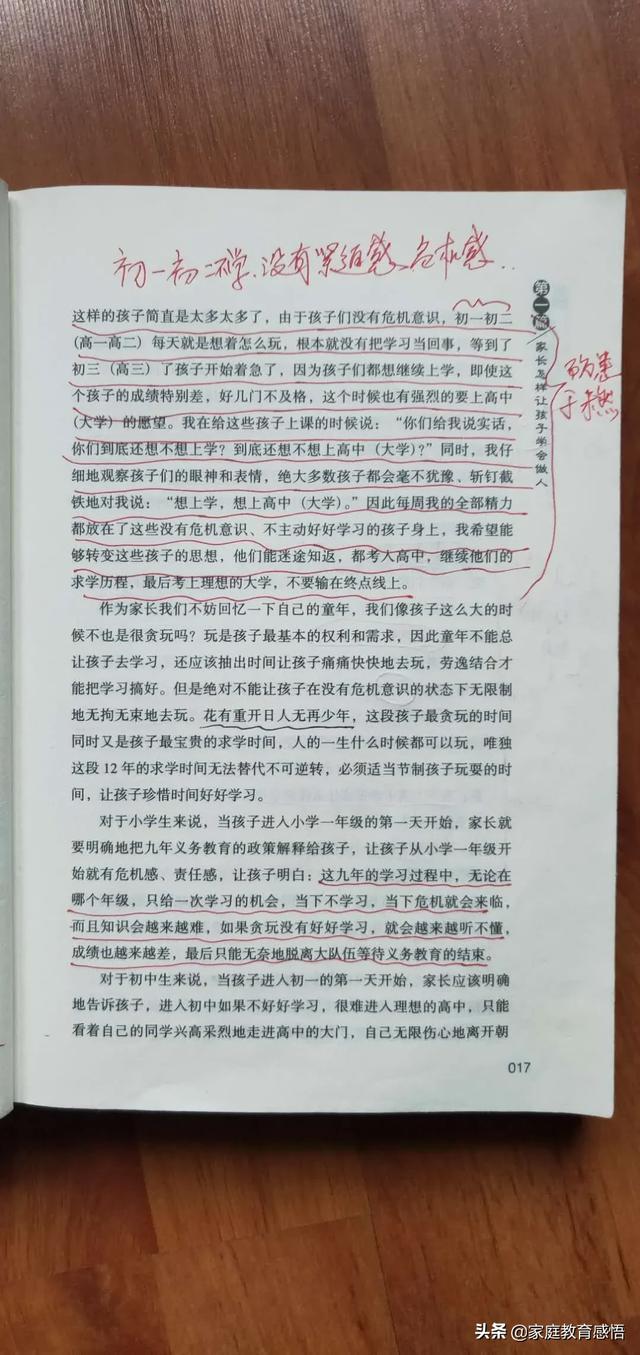 初一初二不学，没有紧迫感、危机感..
第一篇
家长怎样让孩子学会做人
防患
于未然
这样的孩子简直是太多太多了，由于孩子们没有危机意识，初一初二
（高一高二）每天就是想着怎么玩，根本就没有把学习当回事，等到了
初三（高三）了孩子开始着急了，因为孩子们都想继续上学，即使这
个孩子的成绩特别差，好几门不及格，这个时候也有强烈的要上高中
（大学）的愿望。我在给这些孩子上课的时候说：“你们给我说实话，
你们到底还想不想上学？到底还想不想上高中（大学）？”同时，我仔
细地观察孩子们的眼神和表情，绝大多数孩子都会毫不犹豫、斩钉截
铁地对我说：“想上学，想上高中（大学）。”因此每周我的全部精力
都放在了这些没有危机意识、不主动好好学习的孩子身上，我希望能
够转变这些孩子的思想，他们能迷途知返，都考入高中，继续他们的
求学历程，最后考上理想的大学，不要输在终点线上。
作为家长我们不妨回忆一下自己的童年，我们像孩子这么大的时
候不也是很贪玩吗？玩是孩子最基本的权利和需求，因此童年不能总
让孩子去学习，还应该抽出时间让孩子痛痛快快地去玩，劳逸结合才
能把学习搞好。但是绝对不能让孩子在没有危机意识的状态下无限制
地无拘无束地去玩。花有重开日人无再少年，这段孩子最贪玩的时间
同时又是孩子最宝贵的求学时间，人的一生什么时候都可以玩，唯独
这段 12 年的求学时间无法替代不可逆转，必须适当节制孩子玩耍的时
间，让孩子珍惜时间好好学习。
对于小学生来说，当孩子进入小学一年级的第一天开始，家长就
要明确地把九年义务教育的政策解释给孩子，让孩子从小学一年级开
始就有危机感、责任感，让孩子明白：这九年的学习过程中，无论在
哪个年级，只给一次学习的机会，当下不学习，当下危机就会来临，
而且知识会越来越难，如果贪玩没有好好学习，就会越来越听不懂，
成绩也越来越差，最后只能无奈地脱离大队伍等待义务教育的结束。
对于初中生来说，当孩子进入初一的第一天开始，家长应该明确
地告诉孩子，进入初中如果不好好学习，很难进入理想的高中，只能
看着自己的同学兴高采烈地走进高中的大门，自己无限伤心地离开朝
017
头条 @家庭教育感悟